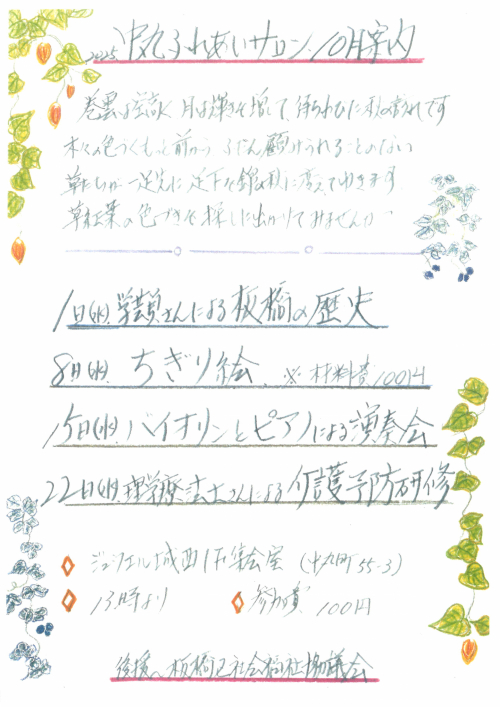 2025 中丸ふれあいサロン 10月案内
巻雲は空高く 月は輝きを増して、待ちわびた秋の訪れです
木々の色づくもっと前から、ふだん顧みられることのない
草たちが一足先に 足下を錦の秋に変えてゆきます
草紅葉の色づきを探しに出かけてみませんか
1日(水) 学芸員さんによる板橋の歴史
8日(水) ちぎり絵 ※材料費100円
15日(水) バイオリンとピアノによる演奏会
22日(水) 理学療法士さんによる介護予防研修
城西1F集会室 (中丸町55-3)
13時より 参加費 100円
後援 板橋区社会福祉協議会